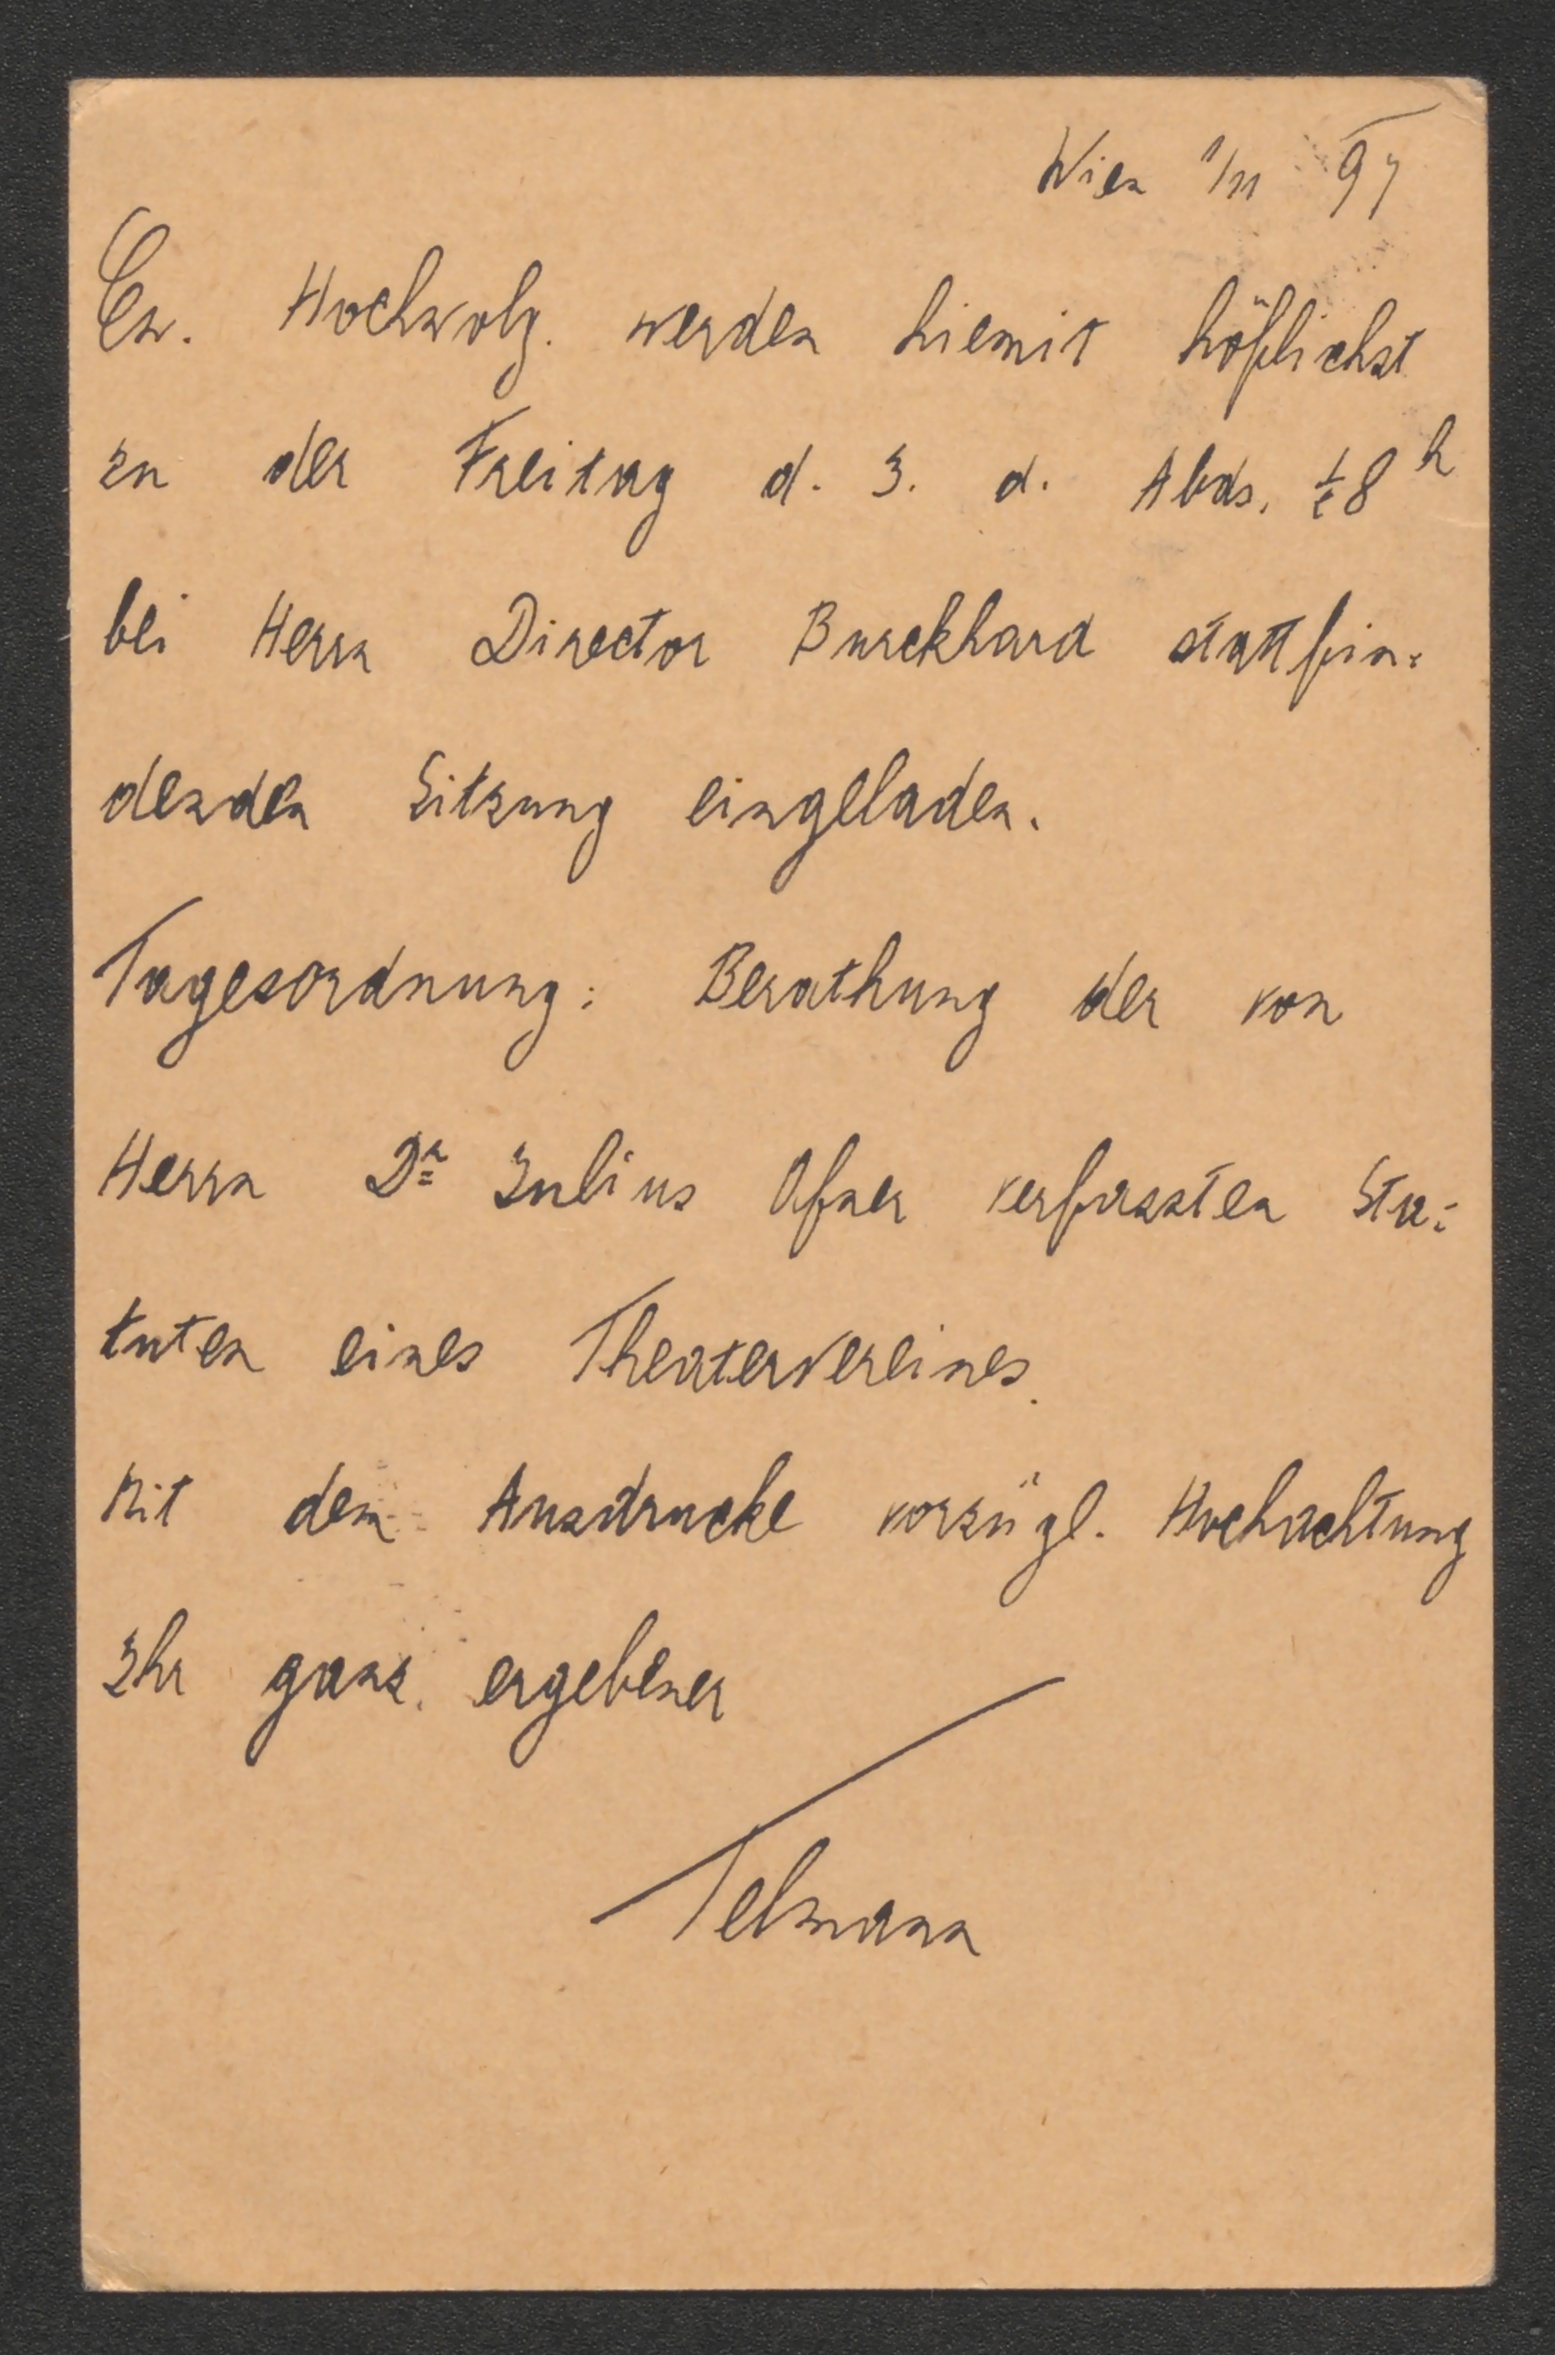 Wien 1/11 99
Ew. Hochwolg. werden hiemit höflichst
zu der Freitag d. 3. d. Abds. ½8 h
bei Herrn Director Burckhard stattfin=
denden Sitzung eingeladen.
Tagesordnung: Berathung der von
Herrn Dr Julius Ofner verfassten Sta=
tuten eines Theatervereines.
Mit dem Ausdrucke vorzügl. Hochachtung
Ihr ganz ergebener
Telmann